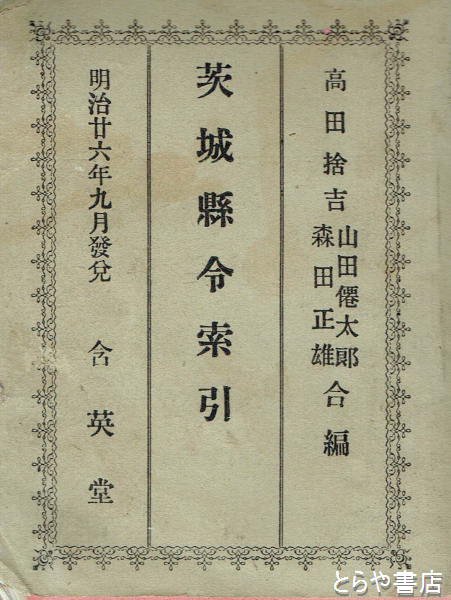 高田捨吉
山田僊太郎
森田正雄
合編
茨城縣令索引
明治廿六年九月發兌 含英堂
とらや書店